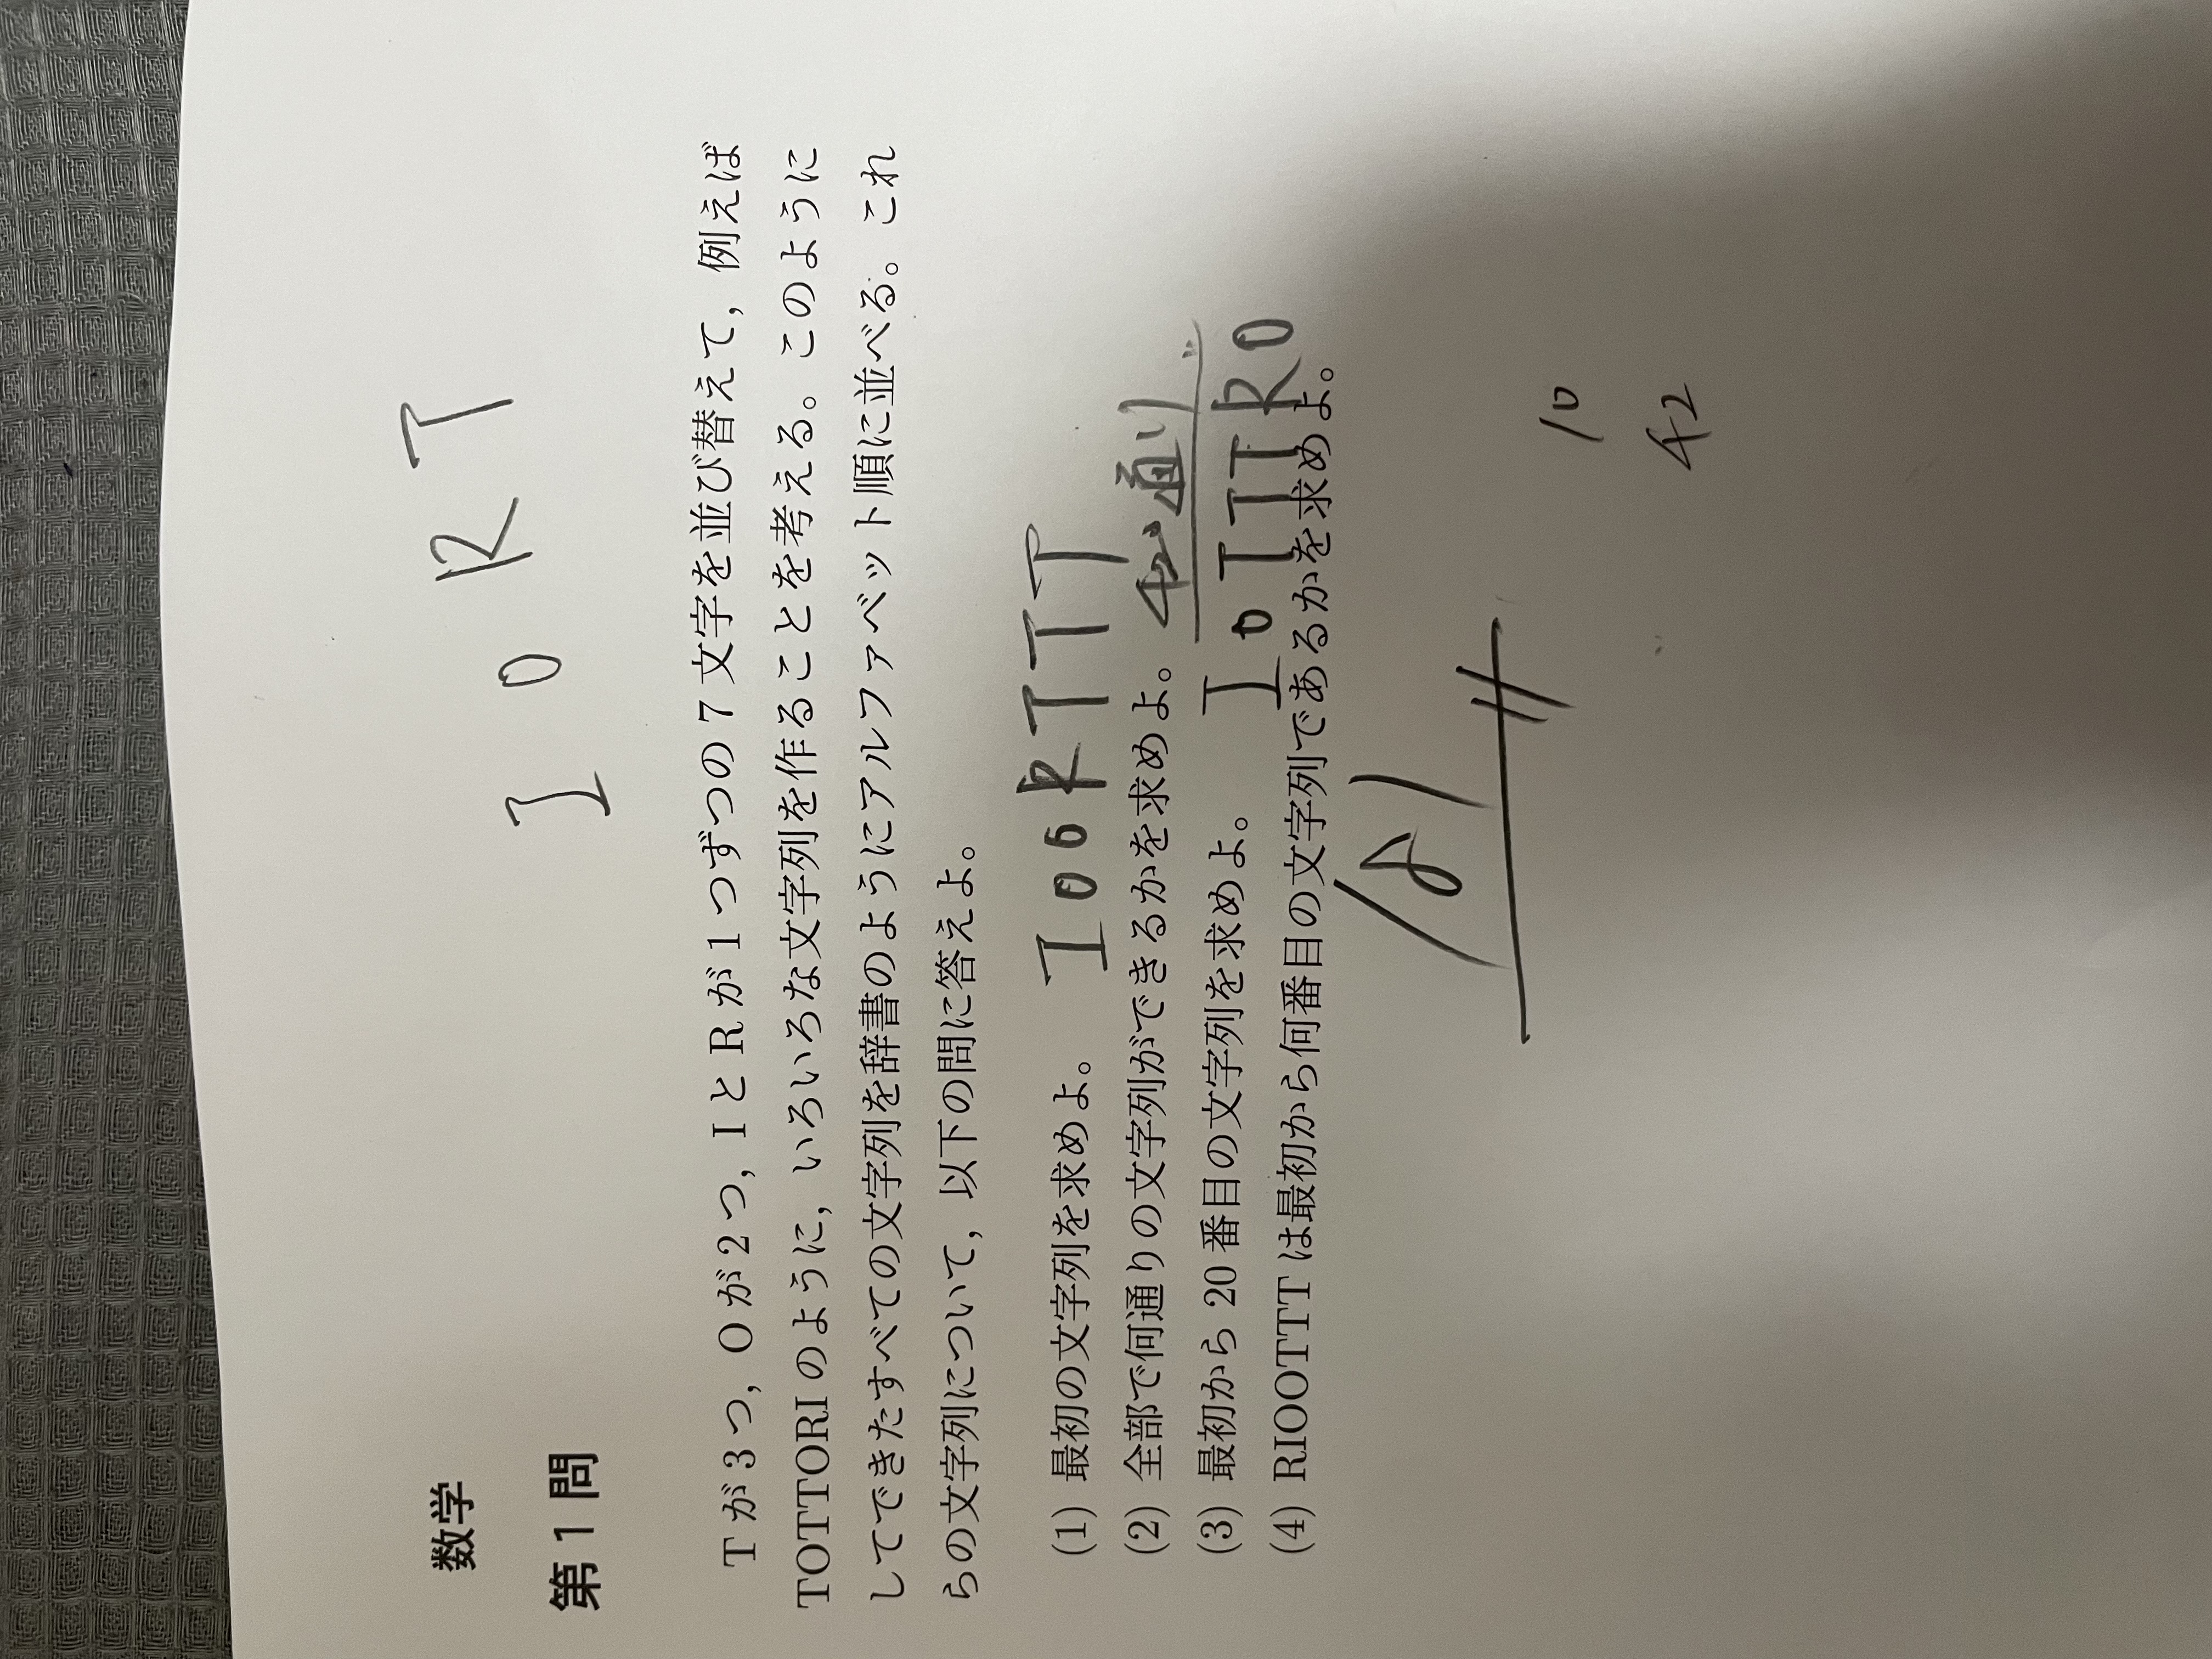 数学
I O R T
第1問
Tが3つ, Oが2つ, IとRが1つずつの7文字を並び替えて, 例えば
TOTTORIのように, いろいろな文字列を作ることを考える。このように
してできたすべての文字列を辞書のようにアルファベット順に並べる。これ
らの文字列について, 以下の問に答えよ。
(1) 最初の文字列を求めよ。 I O O R T T T
(2) 全部で何通りの文字列ができるかを求めよ。 通り
(3) 最初から20番目の文字列を求めよ。 I O T T T R O
(4) RIOOTTTは最初から何番目の文字列であるかを求めよ。
10
42